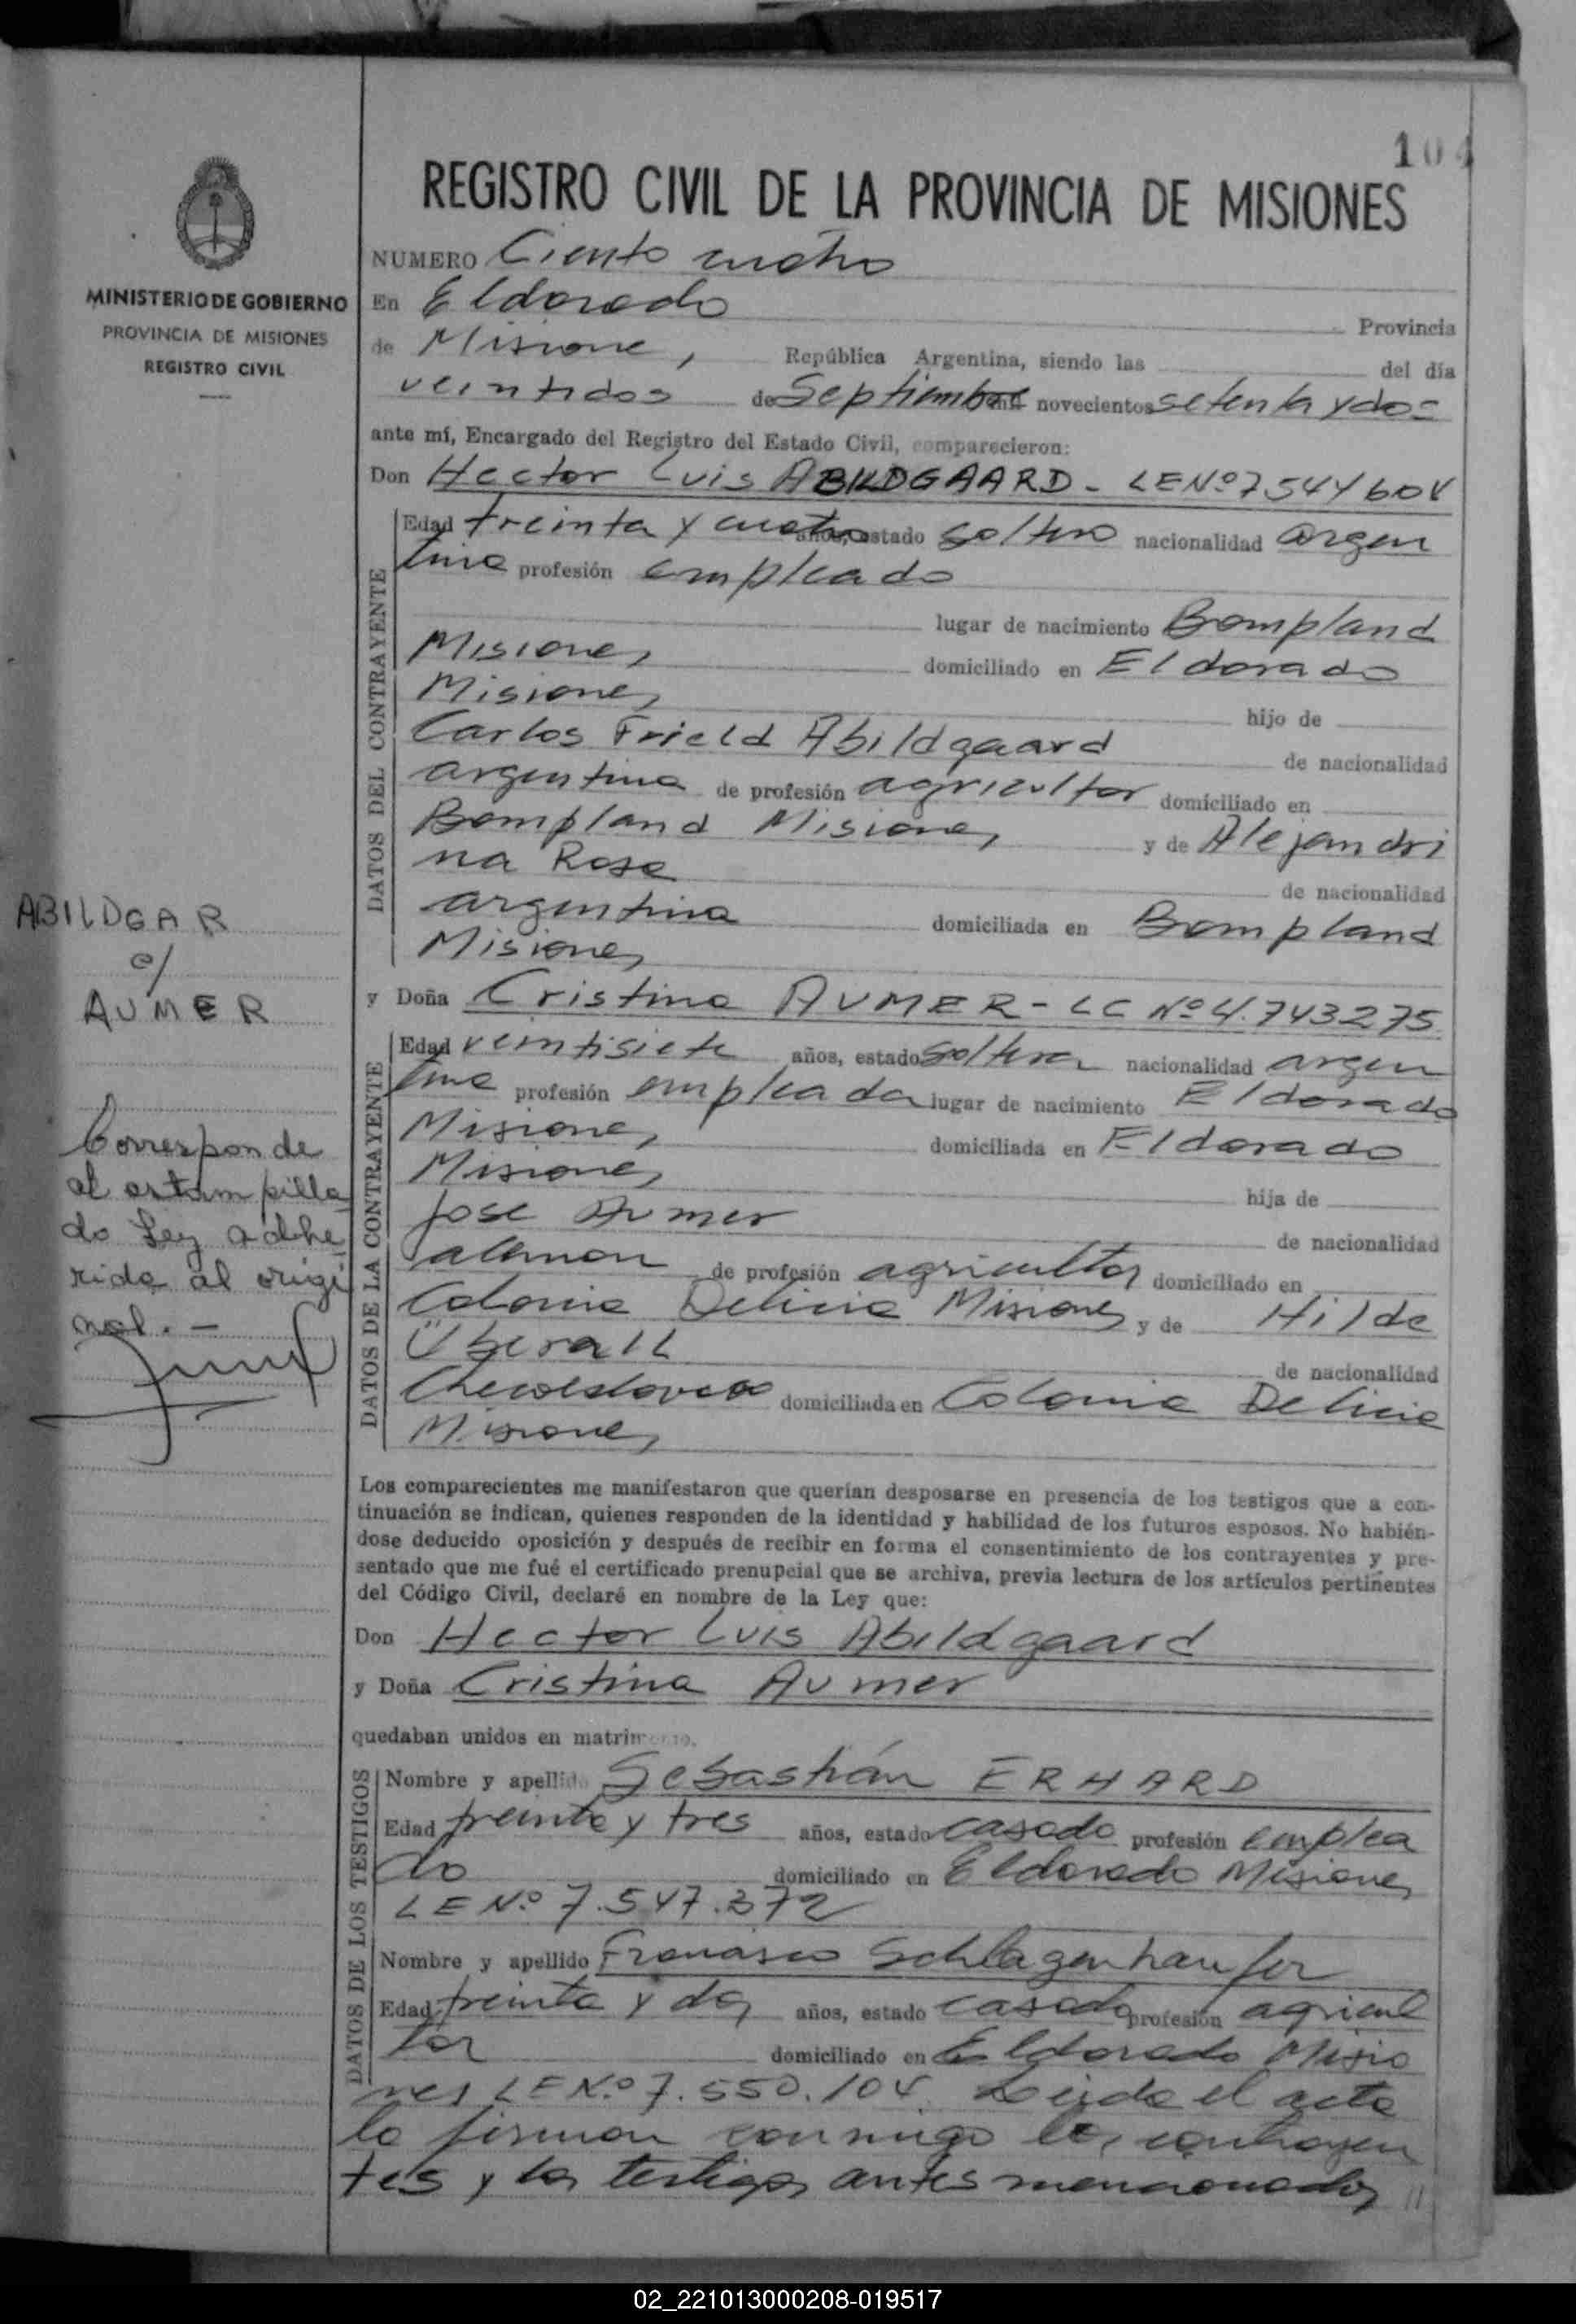 104
REGISTRO CIVIL DE LA PROVINCIA DE MISIONES
MINISTERIO DE GOBIERNO
PROVINCIA DE MISIONES
REGISTRO CIVIL
NUMERO Ciento cuatro
En Eldorado Provincia
de Misiones, República Argentina, siendo las del día
veintidos de Septiembre mil novecientos setenta y dos
ante mí, Encargado del Registro del Estado Civil, comparecieron:
Don Hector Luis ABILDGAARD - LE Nº 7544604
DATOS DEL CONTRAYENTE
Edad treinta y cuatro años, estado soltero nacionalidad argen
tina profesión empleado
lugar de nacimiento Bompland
Misiones domiciliado en Eldorado
Misiones hijo de
Carlos Frield Abildgaard de nacionalidad
argentina de profesión agricultor domiciliado en
Bompland Misiones y de Alejandri
na Rosa de nacionalidad
argentina domiciliada en Bompland
Misiones
ABILDGAR
c/
AUMER
y Doña Cristina AUMER - LC Nº 4.743275
DATOS DE LA CONTRAYENTE
Edad veintisiete años, estado soltera nacionalidad argen
tina profesión empleada lugar de nacimiento Eldorado
Misiones domiciliada en Eldorado
Misiones hija de
Jose Aumer de nacionalidad
aleman de profesión agricultor domiciliado en
Colonia Delicia Misiones y de Hilde
Überall de nacionalidad
Checoeslovaca domiciliada en Colonia Delicia
Misiones
Corresponde
al estampilla
do Ley adhe
rida al origi
nal. -
Los comparecientes me manifestaron que querían desposarse en presencia de los testigos que a con-
tinuación se indican, quienes responden de la identidad y habilidad de los futuros esposos. No habién-
dose deducido oposición y después de recibir en forma el consentimiento de los contrayentes y pre-
sentado que me fué el certificado prenupcial que se archiva, previa lectura de los artículos pertinentes
del Código Civil, declaré en nombre de la Ley que:
Don Hector Luis Abildgaard
y Doña Cristina Aumer
quedaban unidos en matrimonio.
DATOS DE LOS TESTIGOS
Nombre y apellido Sebastián ERHARD
Edad treinta y tres años, estado casado profesión emplea
do domiciliado en Eldorado Misiones
LE Nº 7.547.372
Nombre y apellido Francisco Schlagenhaufer
Edad treinta y dos años, estado casado profesión agricul
tor domiciliado en Eldorado Misio
nes LE Nº 7.550.104. Leida el acta
la firman conmigo los contrayen
tes y los testigos antes mencionados //
02_221013000208-019517